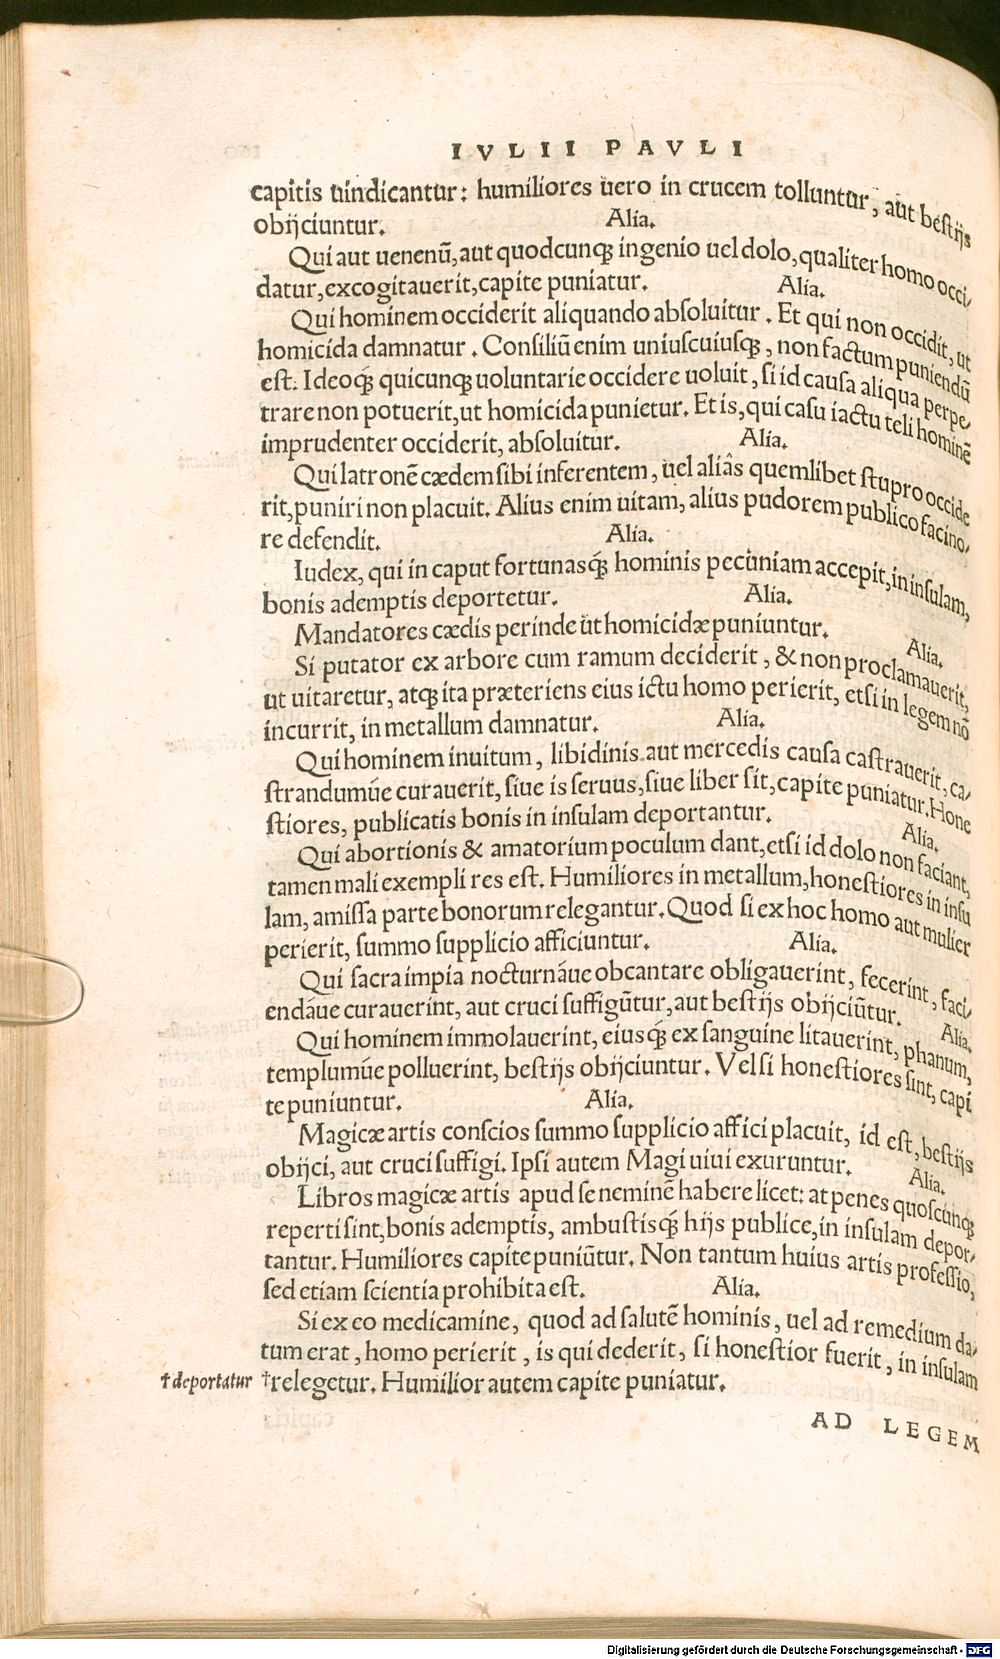 IVLII PAVLI
capitis uindicantur: humiliores uero in crucem tolluntur, aut bestijs
obijciuntur. Alia.
Qui aut uenenū, aut quodcunqꝫ ingenio uel dolo, qualiter homo occi-
datur, excogitauerit, capite puniatur. Alia.
Qui hominem occiderit aliquando absoluitur. Et qui non occidit, ut
homicida damnatur. Consiliū enim uniuscuiusqꝫ, non factum puniendū
est. Ideoqꝫ quicunqꝫ uoluntarie occidere uoluit, si id causa aliqua perpe-
trare non potuerit, ut homicida punietur. Et is, qui casu iactu teli hominē
imprudenter occiderit, absoluitur. Alia.
Qui latronē cædem sibi inferentem, uel aliâs quemlibet stupro occide
rit, puniri non placuit. Alius enim uitam, alius pudorem publico facino-
re defendit. Alia.
Iudex, qui in caput fortunasqꝫ hominis pecuniam accepit, in insulam,
bonis ademptis deportetur. Alia.
Mandatores cædis perinde ut homicidæ puniuntur. Alia.
Si putator ex arbore cum ramum deciderit, & non proclamauerit,
ut uitaretur, atqꝫ ita præteriens eius ictu homo perierit, etsi in legem nō
incurrit, in metallum damnatur. Alia.
Qui hominem inuitum, libidinis aut mercedis causa castrauerit, ca-
strandumúe curauerit, siue is seruus, siue liber sit, capite puniatur. Hone
stiores, publicatis bonis in insulam deportantur. Alia.
Qui abortionis & amatorium poculum dant, etsi id dolo non faciant,
tamen mali exempli res est. Humiliores in metallum, honestiores in insu
lam, amissa parte bonorum relegantur. Quod si ex hoc homo aut mulier
perierit, summo supplicio afficiuntur. Alia.
Qui sacra impia nocturnáue obcantare obligauerint, fecerint, faci-
endáue curauerint, aut cruci suffigūtur, aut bestijs obijciūtur. Alia.
Qui hominem immolauerint, eiusqꝫ ex sanguine litauerint, phanum,
templumúe polluerint, bestijs obijciuntur. Vel si honestiores sint, capi
te puniuntur. Alia.
Magicæ artis conscios summo supplicio affici placuit, id est, bestijs
obijci, aut cruci suffigi. Ipsi autem Magi uiui exuruntur. Alia.
Libros magicæ artis apud se neminē habere licet: at penes quoscunqꝫ
reperti sint, bonis ademptis, ambustisqꝫ hijs publice, in insulam depor-
tantur. Humiliores capite puniūtur. Non tantum huius artis professio,
sed etiam scientia prohibita est. Alia.
Si ex eo medicamine, quod ad salutē hominis, uel ad remedium da-
tum erat, homo perierit, is qui dederit, si honestior fuerit, in insulam
†deportatur †relegetur. Humilior autem capite puniatur.
AD LEGEM
Digitalisierung gefördert durch die Deutsche Forschungsgemeinschaft - DFG